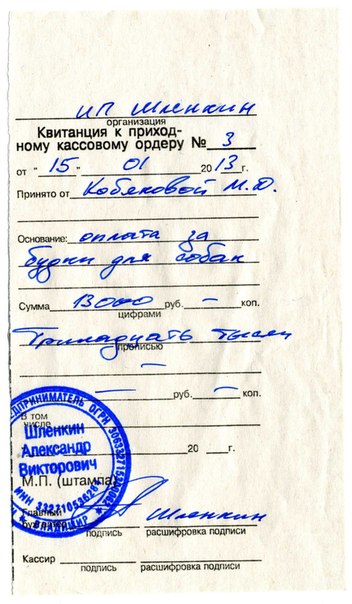 ИП Шленкин
организация
Квитанция к приход-
ному кассовому ордеру № 3
от "15" 01 2013г.
Принято от Кобяковой М.Ю.
Основание: оплата за
будки для собак
Сумма 13000 руб. – коп.
цифрами
Тринадцать тысяч
прописью
–
– руб. – коп.
В том
числе
20 г.
М.П. (штампа)
Главный
бухгалтер Шленкин
подпись расшифровка подписи
Кассир
подпись расшифровка подписи
ПРЕДПРИНИМАТЕЛЬ ОГРН
Шленкин
Александр
Викторович
ИНН